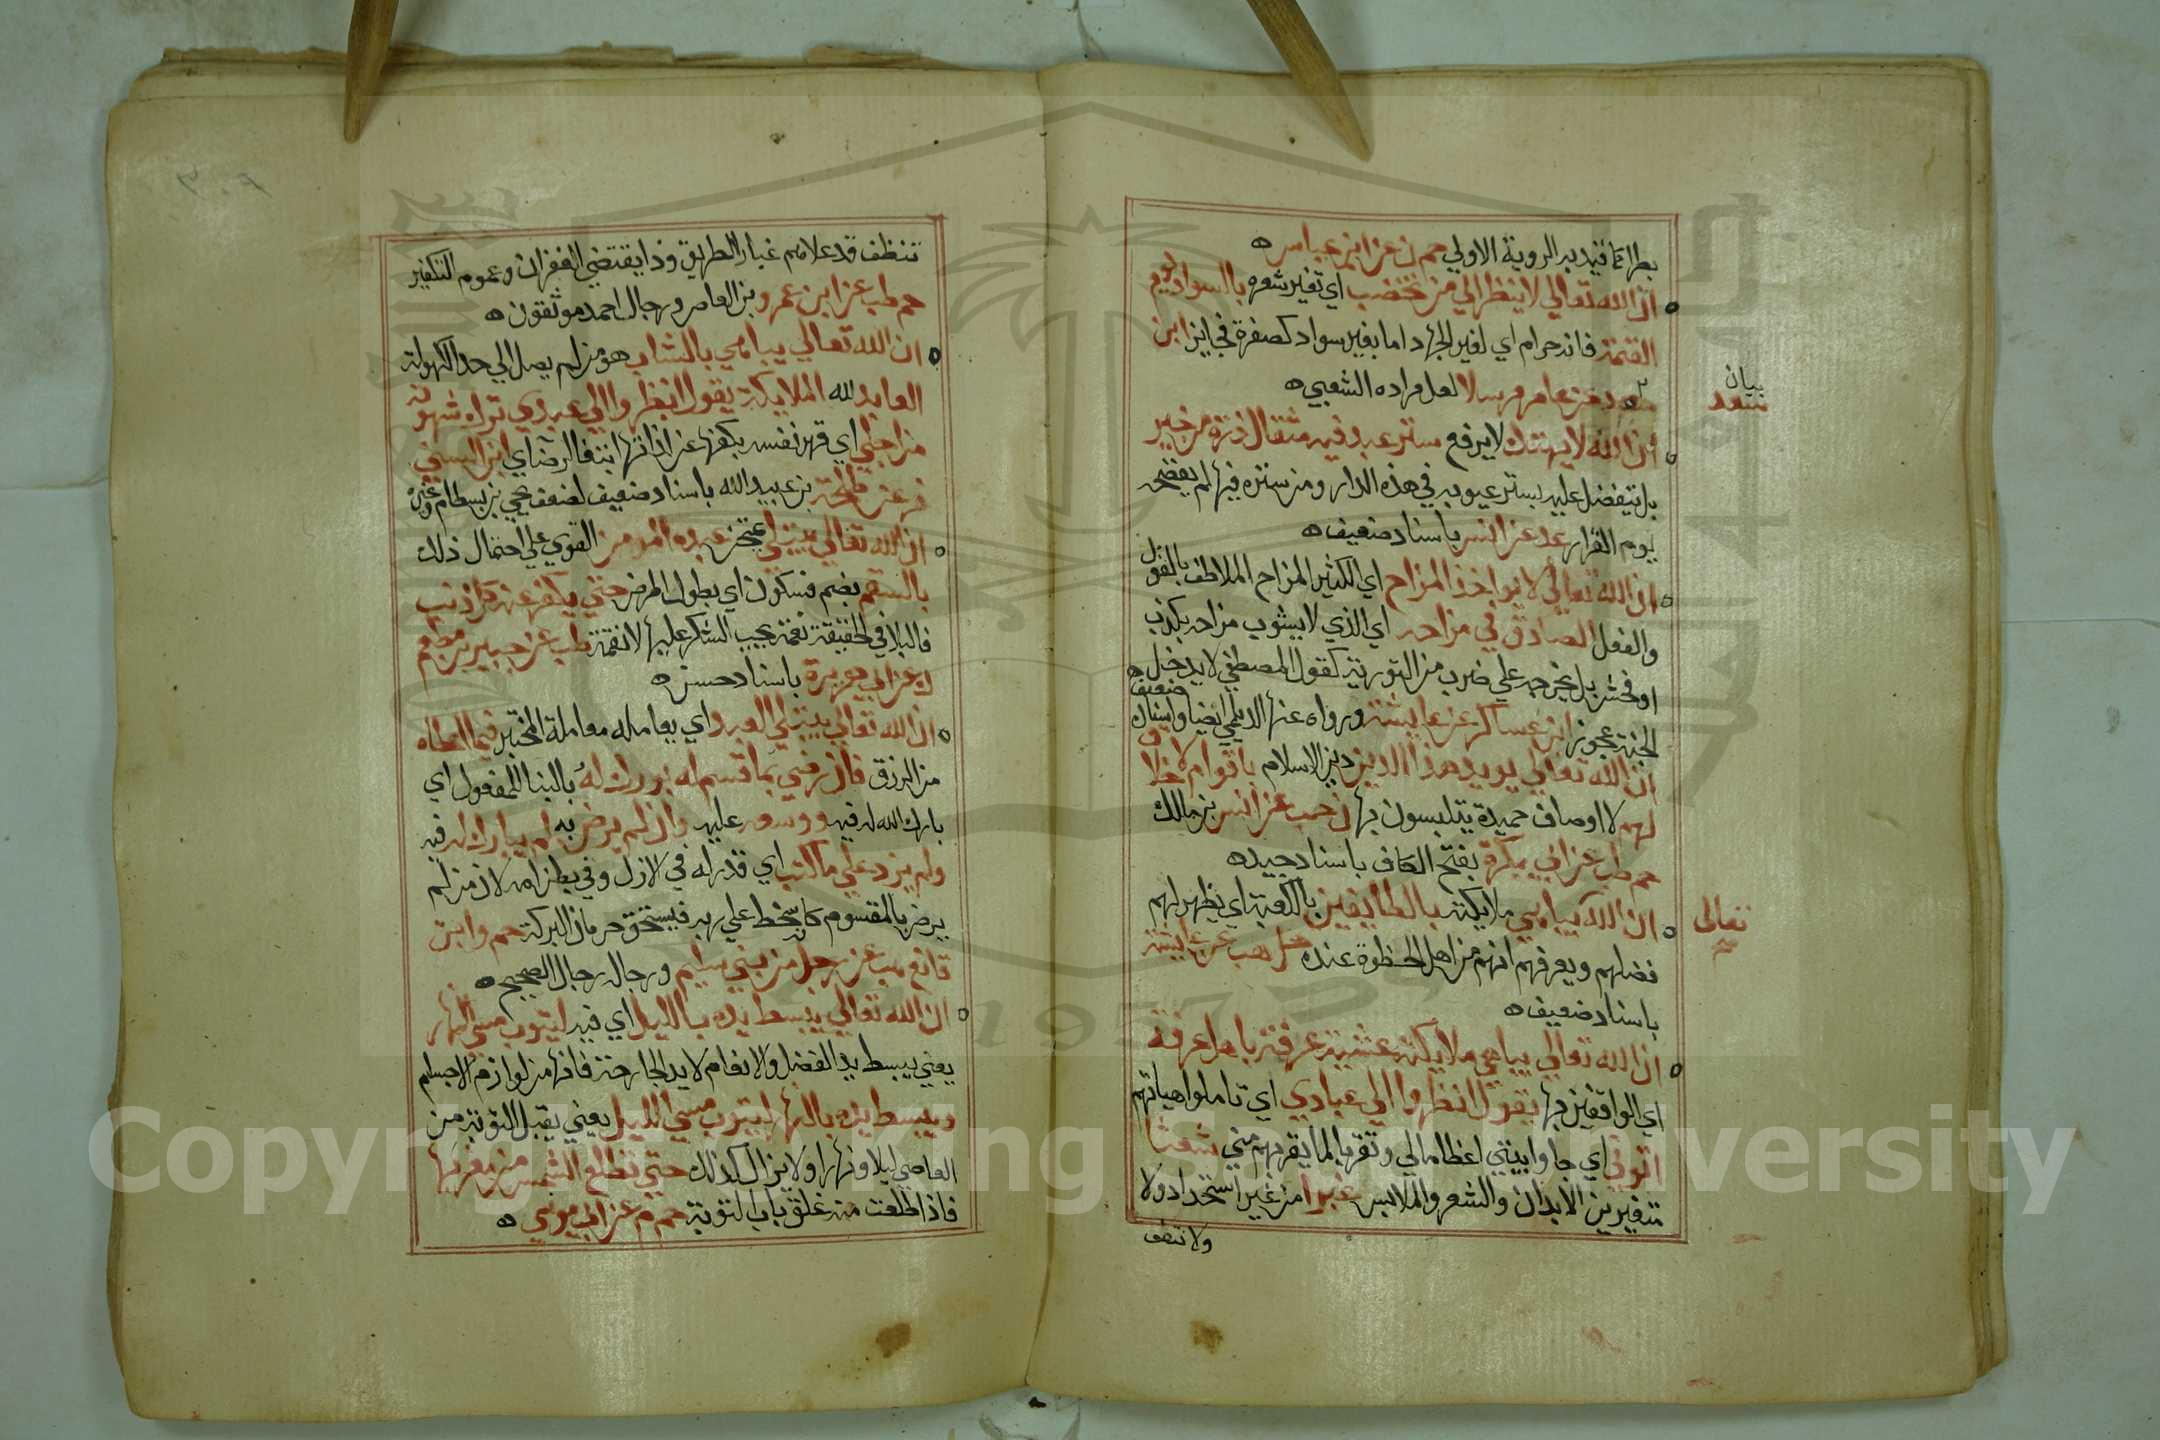 بطرا كما قيد به الروية الاولي حم ن عن ابن عباس ه
ان الله تعالي لا ينظر الي من يخضب اي تغير شعره بالسواد يوم
القيمة فانه حرام اي لغير الجهاد اما بغير سواد كصفرة فجايز ابن
سعد عن عامر مرسلا لعل مراده الشعبي ه
بيان
سعد
ان الله لا يهتك لا يرفع ستر عبد فيه مثقال ذرة من خير
بل يتفضل عليه بستر عيوبه في هذه الدار ومن ستره فيها لم يفضحه
يوم القرار عد عن انس باسناد ضعيف ه
ان الله تعالي لا يواخذ المزاح اي الكثير المزاح الملاطف بالقول
والفعل الصادق في مزاحه اي الذي لا يشوب مزاحه بكذب
او فحش بل يخرجه علي ضرب من التورية كقول المصطفي لا يدخل
الجنة عجوز ابن عساكر عن عايشة ورواه عنها الديلمي ايضا واسناده ضعيف ه
ان الله تعالي يويد هذا الدين دين الاسلام باقوام لا خلاق
لهم لا اوصاف حميدة يتلبسون بها ن حب عن انس بن مالك
حم طب عن ابي بكرة بفتح الكاف باسناد جيد ه
ان الله يباهي ملايكته بالطايفين بالكعبة اي يظهر لهم
تعالى
صح
فضلهم ويعرفهم انهم من اهل الحظوة عنده حل هب عن عايشة
باسناد ضعيف ه
ان الله تعالي يباهي ملايكته عشية عرفة باهل عرفة
اي الواقفين بها يقول انظروا الي عبادي اي تاملوا هياتهم
اتوني اي جاوا بيتي اعظاما لي وتقربا لما يقربهم مني شعثا
متغيرين الابدان والشعر والملابس غبرا من غير استحداد ولا
ولا تنظف
٣٠٩
تنظف قد علاهم غبار الطريق وذا يقتضي الغفران وعموم التكفير
حم طب عن ابن عمرو بن العاص ورجال احمد موثقون ه
ان الله تعالي يباهي بالشاب هو من لم يصل الي حد الكهولة
العابد لله الملايكة يقول انظروا الي عبدي ترك شهوته
من اجلي اي قهر نفسه بكفها عن لذاتها ابتغا لرضاي ابن السني
فر عن طلحة بن عبيد الله باسناد ضعيف لضعف يحيي بن بسطام وغيره
ان الله تعالي يبتلي يمتحن عبده المومن القوي علي احتمال ذلك
بالسقم بضم فسكون اي بطول المرض حتي يكفر عنه كل ذنب
فالبلا في الحقيقة نعمة يجب الشكر عليها لا نقمة طب عن جبير بن مطعم
ك عن ابي هريرة باسناد حسن ه
ان الله تعالي يبتلي العبد اي يعامله معاملة المختبر فيما اعطاه
من الرزق فان رضي بما قسم له بورك له بالبنا للمفعول اي
بارك الله له فيه ووسعه عليه وان لم يرض به لم يبارك له فيه
ولم يزد علي ما كتب اي قدر له في الازل وفي بطن امه لان من لم
يرض بالمقسوم كان سخط علي ربه فيستحق حرمان البركة حم وابن
قانع هب عن رجل من بني سليم ورجاله رجال الصحيح ه
ان الله تعالي يبسط يده بالليل اي فيه ليتوب مسي النهار
يعني يبسط يد الفضل والانعام لا يد الجارحة فانها من لوازم الاجسام
ويبسط يده بالنهار ليتوب مسي الليل يعني يقبل التوبة من
العاصي ليلا ونهارا ولا يزال كذلك حتي تطلع الشمس من مغربها
فاذا طلعت منه غلق باب التوبة حم م عن ابي موسي ه
1957
Copyright © King Saud University